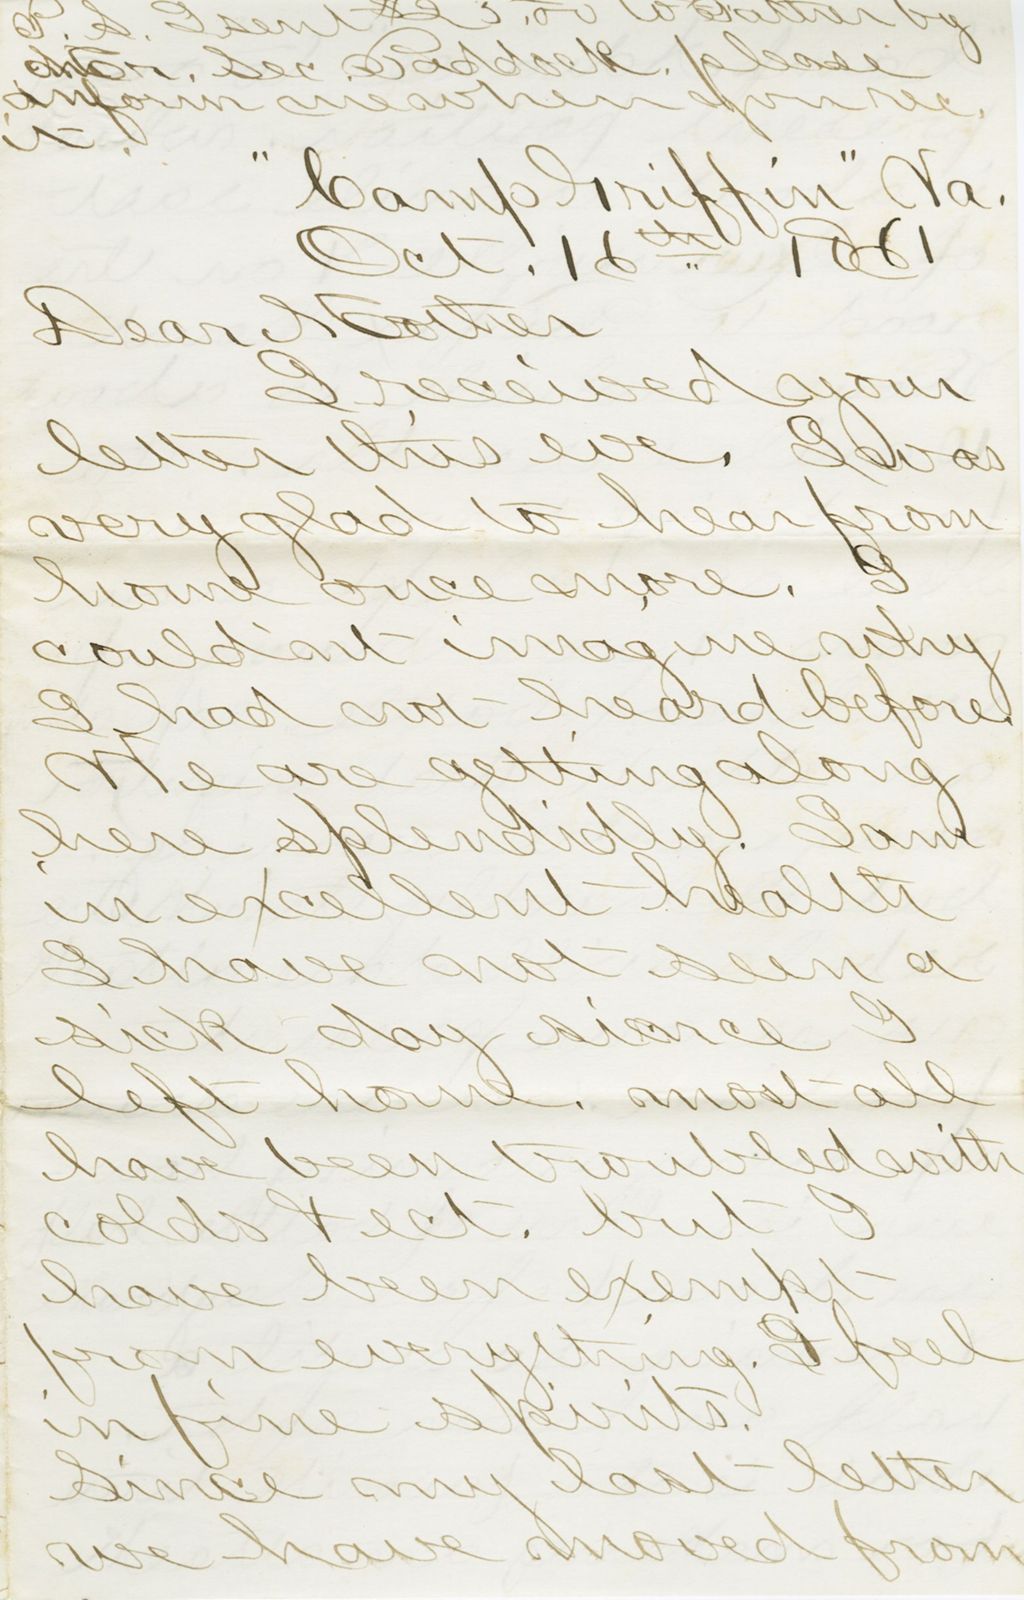 P.S. I sent $25.00 to Father by
Mr. Geo. Paddock. please
inform me when you rec.
it.
"Camp Griffin" Va.
Oct. 16th 1861
Dear Mother
I received your
letter this eve. I was
very glad to hear from
home once more. I
could'nt imagine why
I had not heard before.
We are getting along
here splendidly. I am
in excellent health
I have not seen a
sick day since I
left home. most all
have been troubled with
colds & ect. but I
have been exempt
from everything. I feel
in fine spirits.
Since my last letter
we have moved from